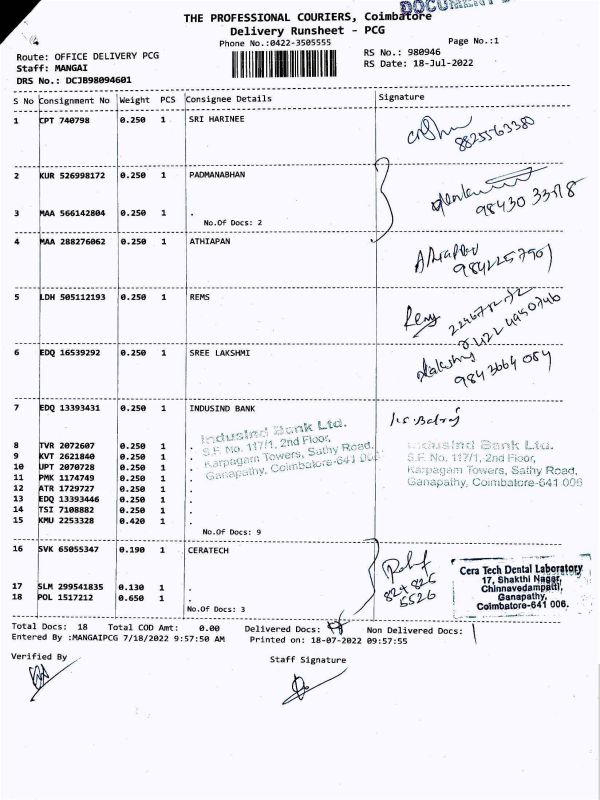 DOCUMENT
THE PROFESSIONAL COURIERS, Coimbatore
Delivery Runsheet - PCG
Phone No.:0422-3505555
Page No.:1
Route: OFFICE DELIVERY PCG
RS No.: 980946
Staff: MANGAI
RS Date: 18-Jul-2022
DRS No.: DCJB98094601
S No Consignment No Weight PCS Consignee Details Signature
1 CPT 740798 0.250 1 SRI HARINEE
8825563380
2 KUR 526998172 0.250 1 PADMANABHAN
98430 33518
3 MAA 566142804 0.250 1 .
No.Of Docs: 2
4 MAA 288276062 0.250 1 ATHIAPAN
Athiappan
9842257901
5 LDH 505112193 0.250 1 REMS
Remy
6 EDQ 16539292 0.250 1 SREE LAKSHMI
Lakshmi
9843664084
7 EDQ 13393431 0.250 1 INDUSIND BANK
IndusInd Bank Ltd.
S.F. No. 117/1, 2nd Floor,
Karpagam Towers, Sathy Road,
Ganapathy, Coimbatore-641 006
IndusInd Bank Ltd.
S.F. No. 117/1, 2nd Floor,
Karpagam Towers, Sathy Road,
Ganapathy, Coimbatore-641 006
8 TVR 2072607 0.250 1 .
9 KVT 2621840 0.250 1 .
10 UPT 2070728 0.250 1 .
11 PMK 1174749 0.250 1 .
12 ATR 1729727 0.250 1 .
13 EDQ 13393446 0.250 1 .
14 TSI 7108882 0.250 1 .
15 KMU 2253328 0.420 1 .
No.Of Docs: 9
16 SVK 65055347 0.190 1 CERATECH
824 826
5526
Cera Tech Dental Laboratory
17, Shakthi Nagar,
Chinnavedampatti,
Ganapathy,
Coimbatore-641 006.
17 SLM 299541835 0.130 1 .
18 POL 1517212 0.650 1 .
No.Of Docs: 3
Total Docs: 18 Total COD Amt: 0.00 Delivered Docs: Non Delivered Docs:
Entered By :MANGAIPCG 7/18/2022 9:57:50 AM Printed on: 18-07-2022 09:57:55
Verified By
Staff Signature